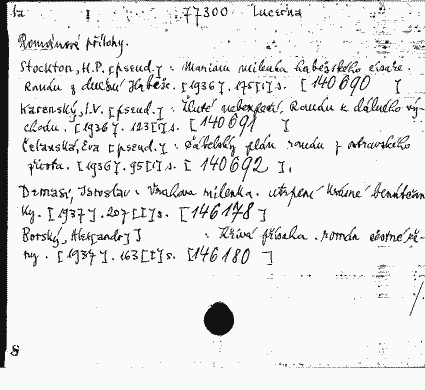 1a 77300 Lucerna
Románové přílohy.
Stockton, H.P. [pseud.] : Mariam milenka habešského císaře.
Román z dnešní Habeše. [1936]. 175[I] s. [140690]
Karenský, I.V. [pseud.] : Žluté nebezpečí. Román z dálného vý-
chodu. [1936]. 123[I] s. [140691]
Čelanská, Eva [pseud.] : Ďábelský plán román z ostravského
života. [1936]. 95[I] s. [140692].
Drmasi, Jaroslav : Vrahova milenka. utrpení krásné benátčan-
ky. [1937]. 207[I] s. [146178]
Borský, Alex[andr] : Křivá přísaha. román
ny. [1937]. 163[I] s. [146180]
8